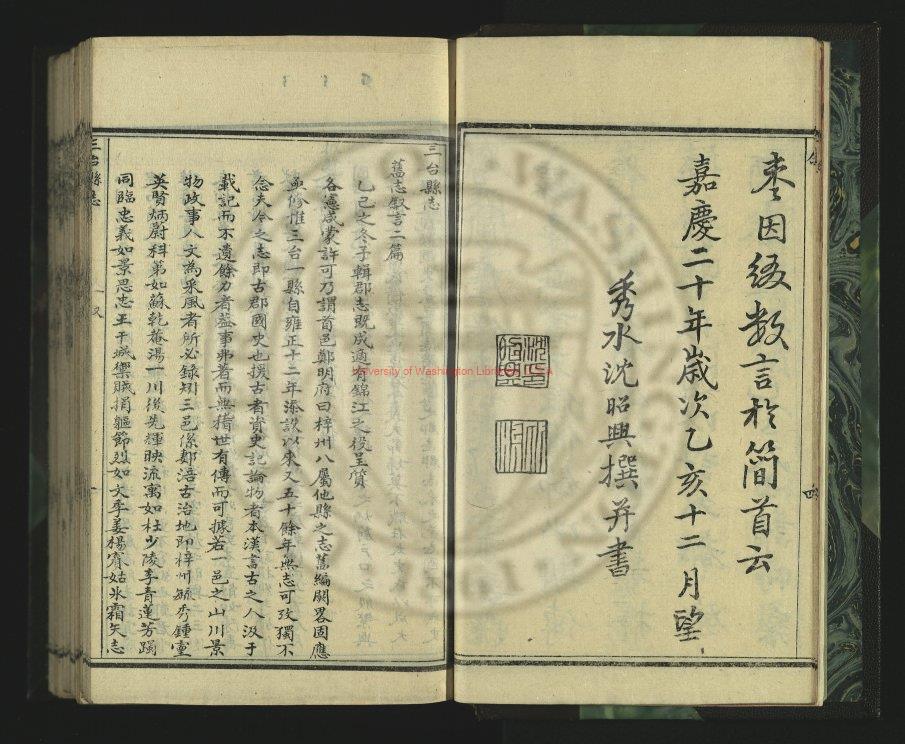 棗因綴數言於簡首云
嘉慶二十年歲次乙亥十二月望
秀水沈昭興撰并書
三台縣志
舊志叙言二篇
乙己之冬予輯郡志既成適有錦江之役呈質
各憲咸蒙許可乃謂首邑鄭明府曰梓州八屬他縣之志舊編闕畧固應
亟修惟三台一縣自雍正十二年添設以來又五十餘年無志可攷獨不
念夫今之志即古郡國史也援古者資史記論物者本漢書古之人汲于
載記而不遺餘力者葢事弗著而無稽世有傳而可據若一邑之山川景
物政事人文為采風者所必錄矧三邑係鄭涪古治地即梓州毓秀鍾靈
英賢炳蔚科第如蘇乾菴湯一川後先輝映流寓如杜少陵李青蓮芳躅
同臨忠義如景思忠王干城禦賊捐軀節烈如文季姜楊賓姑氷霜矢志
三台縣志
University of Washington Libraries, USA